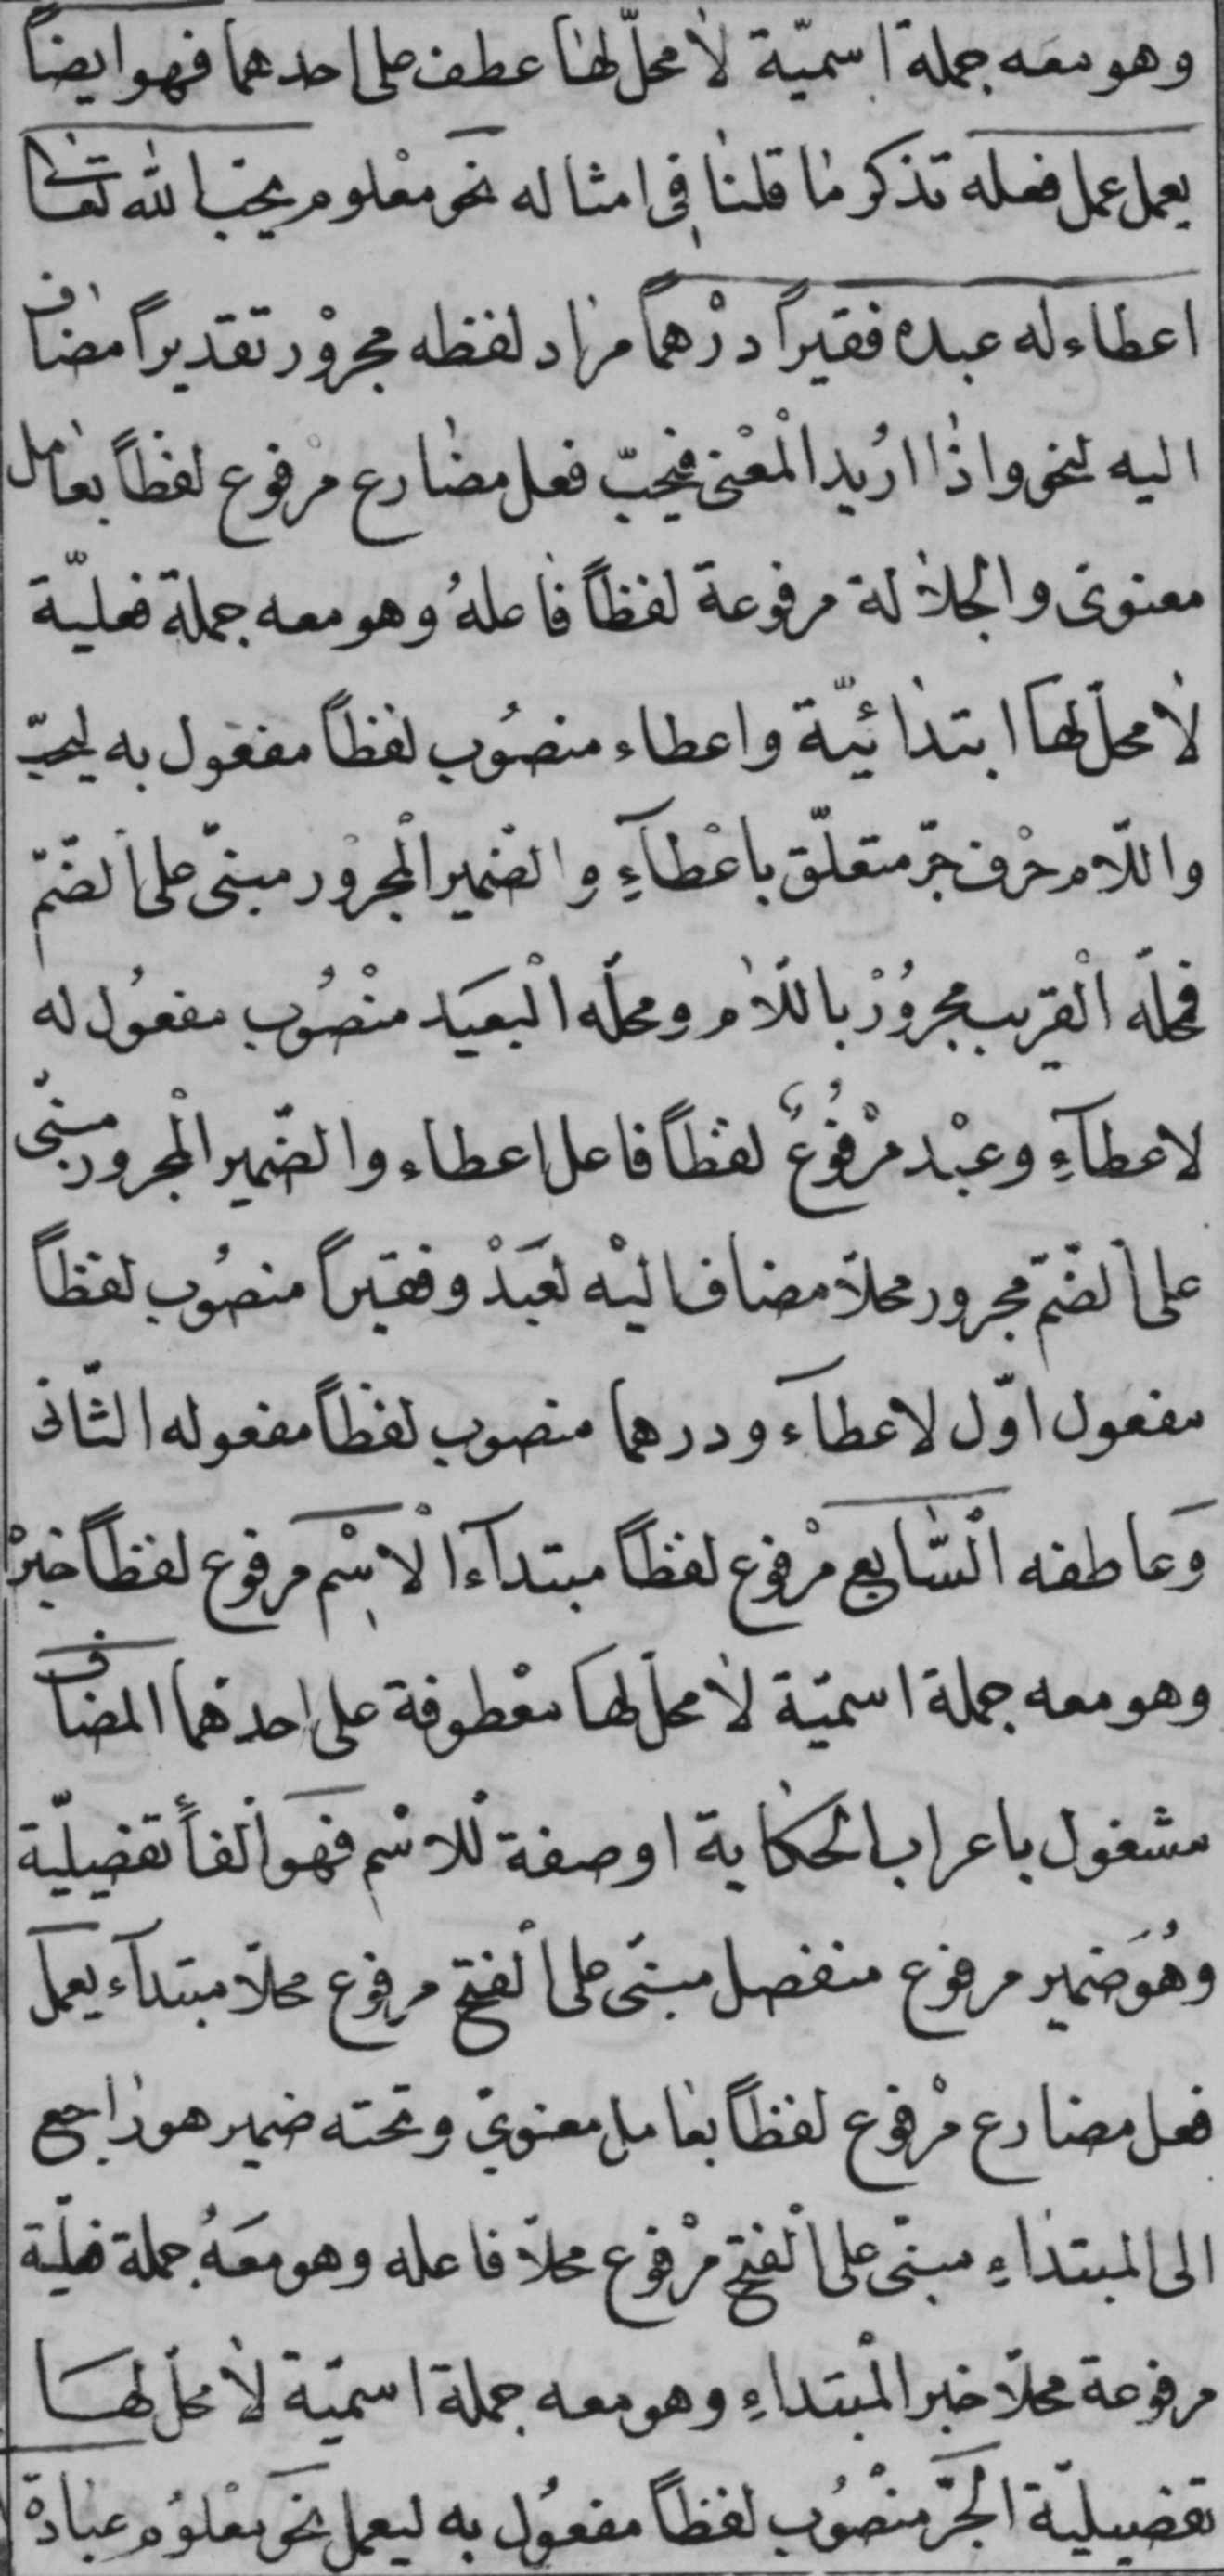 وهو معه جملة اسميّة لا محلّ لها عطف على احدهما فهو ايضاً
يعمل عمل فعله تذكر ما قلنا فى امثاله نحو معلوم يحبّ الله تعالى
اعطاء له عبده فقيراً درْهماً مراد لفظه مجروْر تقديراً مضاف
اليه لنحو واذا اُريد الْمعْنى فيحبّ فعل مضارع مرْفوع لفظاً بعامل
معنوى والجلالة مرفوعة لفظاً فاعلهُ وهو معه جملة فعليّة
لا محلّ لها ابتدائيّة واعطاء منصُوب لفظاً مفعول به ليحبّ
واللّام حرْف جرّ متعلّق باعْطآءِ والضّمير الْمجروْر مبنىّ على الضّمّ
فمحلّه الْقريب مجروُرْ باللّام ومحلّه الْبعيَد منْصُوب مفعوُل له
لاعطآءِ وعبْد مرْفوُعٌ لفظاً فاعل اعطاء والضّمير الْمجرور مبنىّ
على الضّمّ مجرور محلاّ مضاف اليْه لعَبدْ وفقيراً منصُوب لفظاً
مفعول اوّل لاعطآء ودرهما منصوب لفظاً مفعوله الثّانى
وَعاطفه السّابع مرْفوع لفظاً مبتدآء الْاسْم مرفوع لفظاً خبرْ
وهو معه جملة اسميّة لا محلّ لها معْطوفة على احدهما المضاف
مشغول باعراب الحكاية او صفة للاسْم فهو الفأ تفصيليّة
وهُوَ ضمير مرفوع منفصل مبنىّ على الْفتح مرفوع محلاّ مبتدآء يعمل
فعل مضارع مرْفوع لفظاً بعامل معنوىّ وتحته ضمير هو راجع
الى المبتداءِ مبنىّ على الْفتح مرْفوع محلاّ فاعله وهو معَهُ جملة فعليّة
مرفوعة محلاّ خبر الْمبتداءِ وهو معه جملة اسميّة لا محلّ لها
تفصيليّة الْجرّ منْصُوب لفظاً مفعوُل به ليعمل نحو معْلوُم عبادة